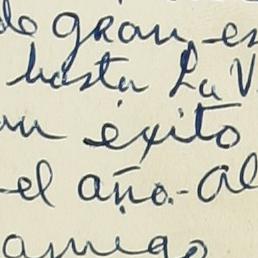 de gran es
hasta La V
un éxito
el año.- Al
amigo